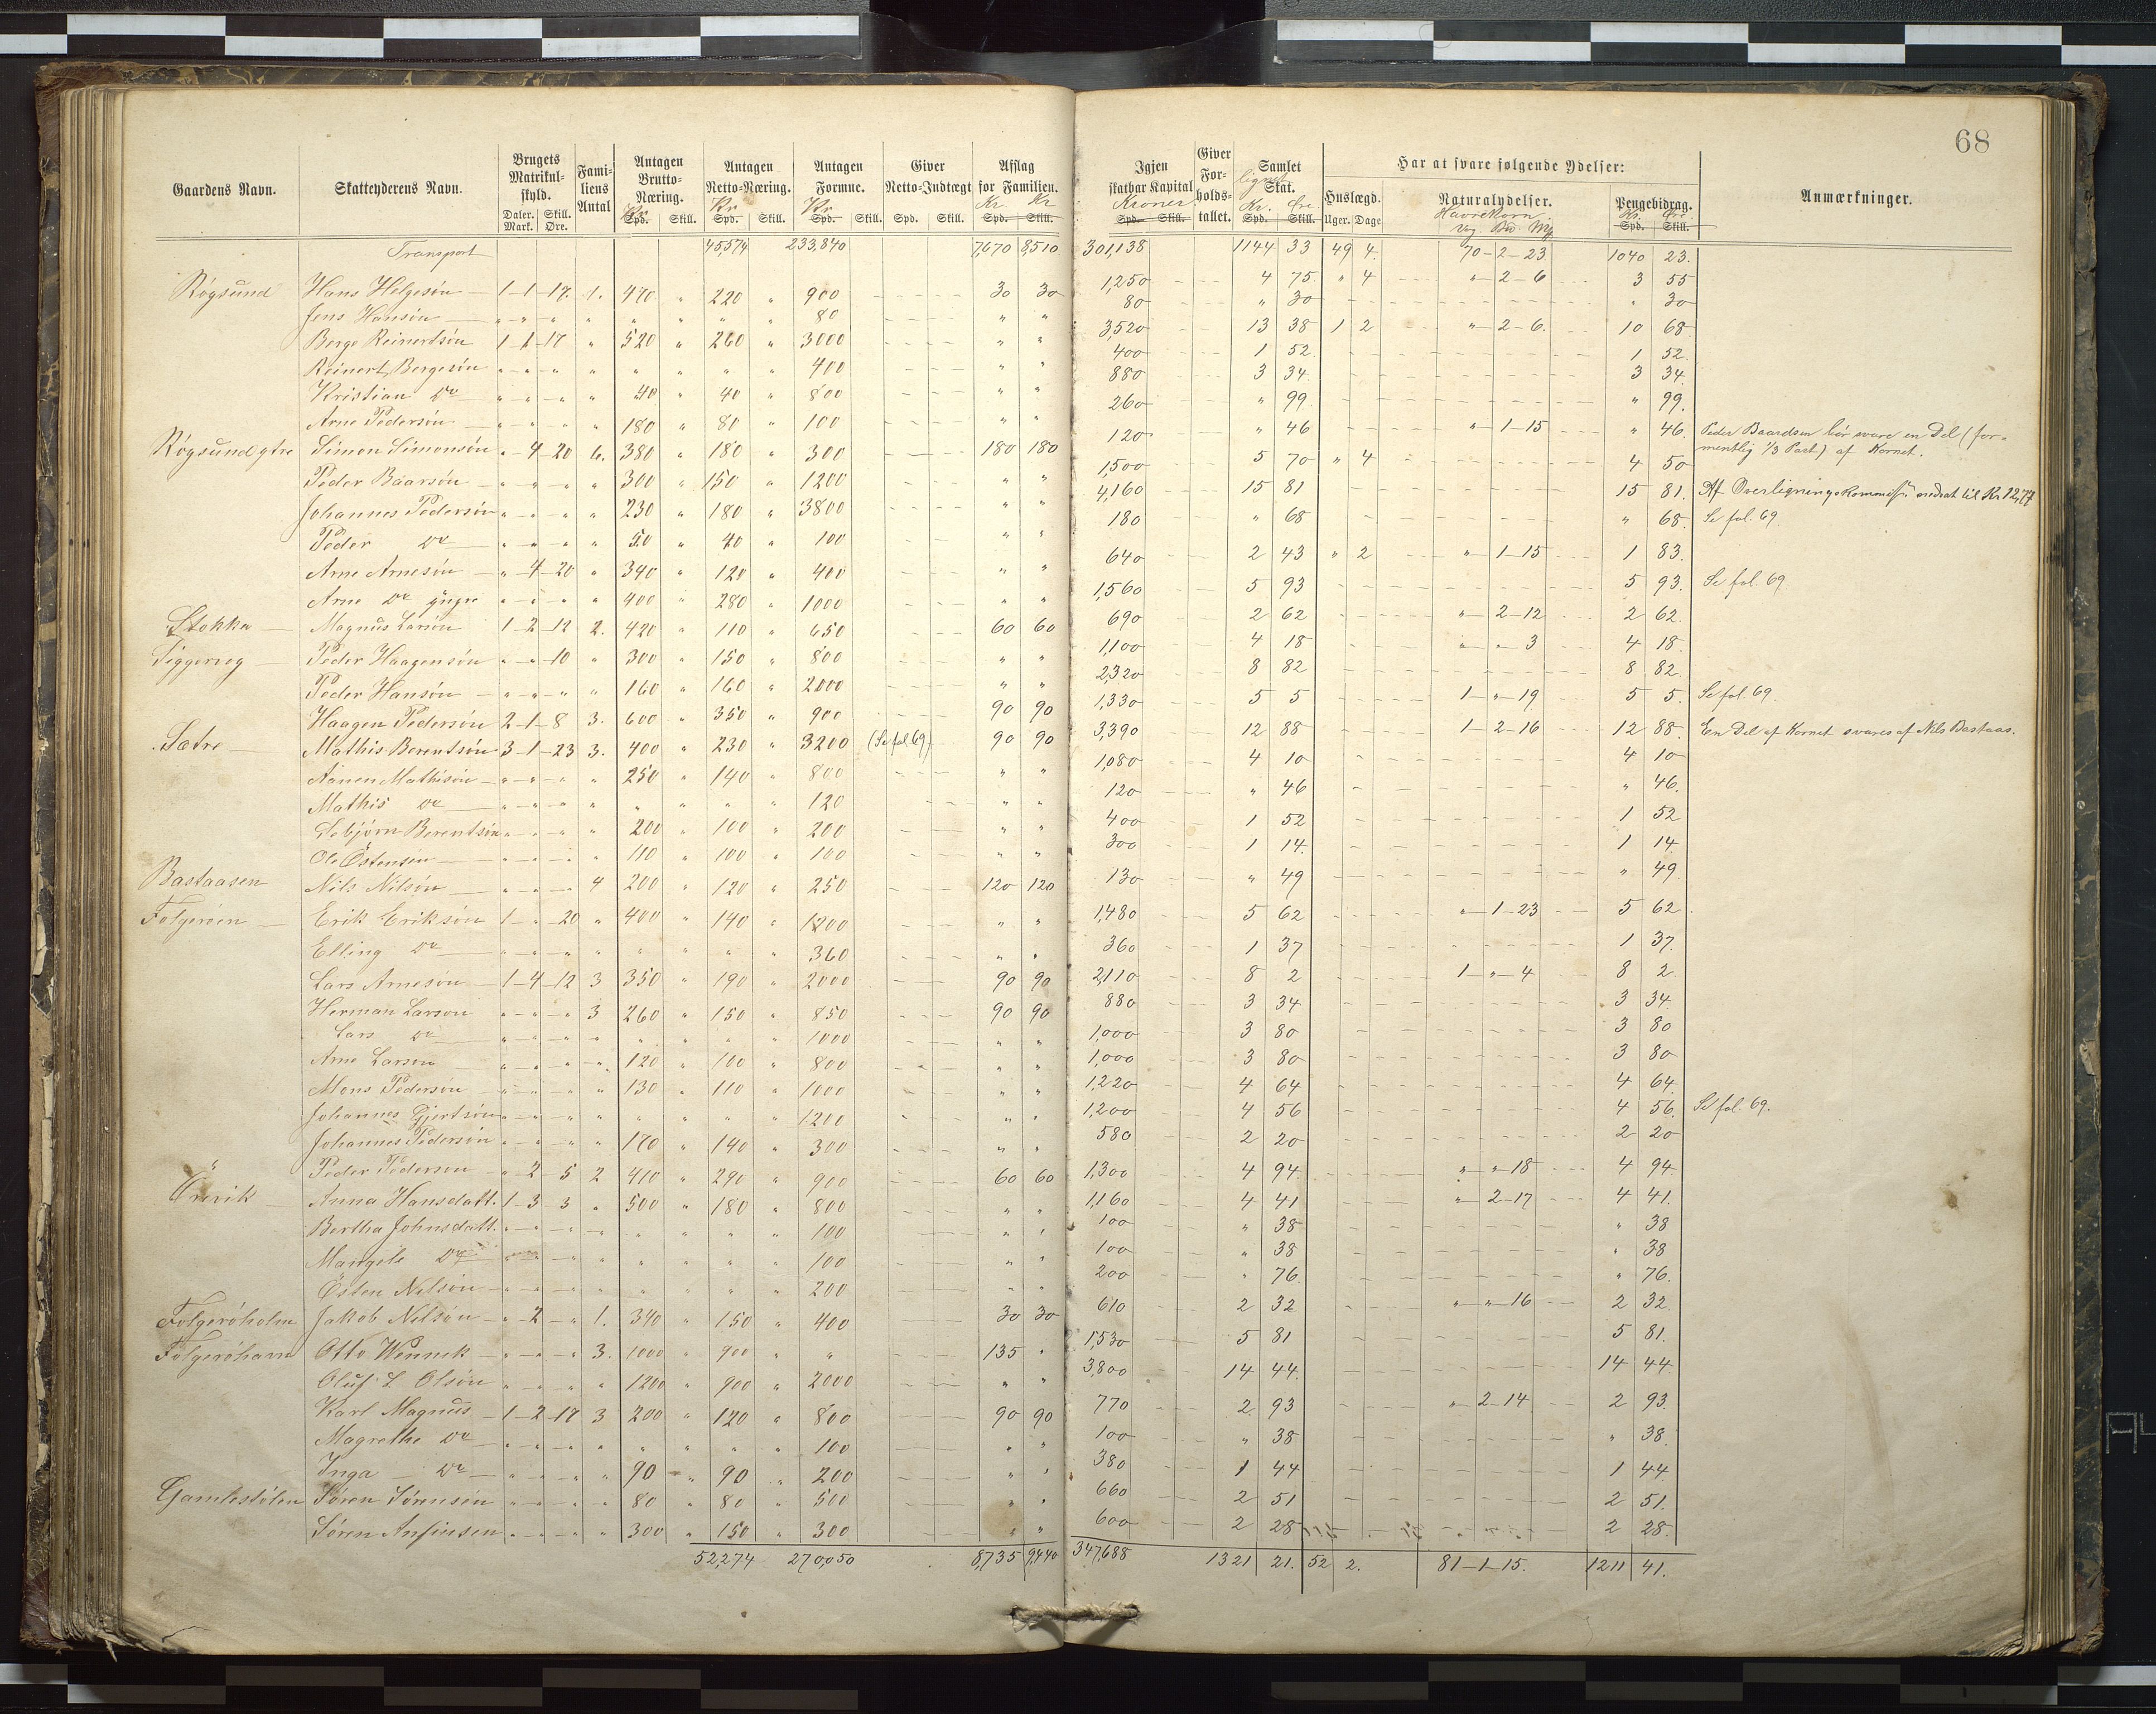 68
Gaardens Navn. Skatteyderens Navn. Brugets Matrikulskyld. Daler. Mark. Skill. Øre. Familiens Antal Antagen Brutto-Næring. Kr. Spd. Skill. Antagen Netto-Næring. Kr. Spd. Skill. Antagen Formue. Kr. Spd. Skill. Giver Netto-Indtægt Spd. Skill. Afslag for Familien. Kr. Kr. Spd. Skill. Igjen skatbar Kapital Kroner Spd. Skill. Giver Forholdstallet. Samlet lignet Skat. Kr. Øre. Spd. Skill. Har at svare følgende Ydelser: Huslægd. Uger. Dage Naturalydelser. Havrekorn Pengebidrag. Kr. Øre. Spd. Skill. Anmærkninger.
Transport 45,574 233,840 7,670 8,510 301,138 1144 33 49 4. 70-2-23 1040 23.
Røgsund Hans Helgesøn 1-1-17. 1. 470 " 220 " 900 30 30 1,250 4 75. " 4 "-2-6 3 55
Jens Hansøn " " " " " " " " 80 " " 80 " 30 " 30
Berge Reinertsøn 1-1-17 " 520 " 260 " 3000 " " 3,520 13 38 1 2 "-2-6. 10 68
Reinert Bergesøn " " " " " " " " 400 " " 400 1 52. 1 52.
Kristian Do " " " " 40 " 40 " 800 " " 880 3 34. 3 34.
Arne Pedersøn " " " " 180 " 80 " 100 " " 260 " 99. " 99.
Røgsund gtre Simon Simonsøn "-4-20 6. 380 " 180 " 300 180 180 120 " 46 "-1-15 " 46. Peder Baardsen bør svare en Del (formentlig 1/3 Part) af Kornet.
Peder Baarsøn " " " " 300 " 150 " 1200 " " 1,500 5 70 " 4 4 50
Johannes Pedersøn " " " " 230 " 180 " 3800 " " 4,160 15 81 15 81. Af Overligningskommiss. nedsat til Kr 12,77
Peder Do " " " " 50 " 40 " 100 " " 180 " 68 " 68. Se fol. 69.
Arne Arnesøn "-4-20 " 340 " 120 " 400 " " 640 2 43 " 2 "-1-15 1 83.
Arne Do yngre " " " " 400 " 280 " 1000 " " 1,560 5 93 5 93. Se fol. 69
Stokka Magnus Larsøn 1-2-12 2. 420 " 110 " 650 60 60 690 2 62 "-2-12 2 62.
Siggervog Peder Haagensøn " "-10 " 300 " 150 " 800 " " 1,100 4 18 " " 3 4 18.
Peder Hansøn " " " " 160 " 160 " 2000 " " 2,320 8 82 8 82.
Haagen Pedersøn 2-1-8 3. 600 " 350 " 900 90 90 1,330 5 5 1-"-19 5 5. Se fol. 69.
Sætre Mathis Berentsøn 3-1-23 3. 400 " 230 " 3200 (Se fol. 69) 90 90 3,390 12 88 1-2-16 12 88. En Del af Kornet svares af Nils Bastaas.
Aanen Mathisøn " " " " 250 " 140 " 800 " " 1,080 4 10 4 10
Mathis Do " " " " " " " " 120 " " 120 " 46 " 46.
Sebjørn Berentsøn " " " " 200 " 100 " 200 " " 400 1 52 1 52
Ole Østensøn " " " " 110 " 100 " 100 " " 300 1 14. 1 14
Bastaasen Nils Nilsøn " " " 4 200 " 120 " 250 120 120 130 " 49 " 49
Folgerøen Erik Eriksøn 1-"-20 " 400 " 140 " 1200 " " 1,480 5 62 "-1-23 5 62.
Elling Do " " " " " " " " 360 " " 360 1 37 1 37.
Lars Arnesøn 1-4-12 3 350 " 190 " 2000 90 90 2,110 8 2 1-"-4 8 2
Herman Larsøn " " " 3 260 " 150 " 850 90 90 880 3 34 3 34.
Lars Do " " " " " " " " 1000 " " 1,000 3 80 3 80
Arne Larsøn " " " " 120 " 100 " 800 " " 1,000 3 80 3 80
Mons Pedersøn " " " " 130 " 110 " 1000 " " 1,220 4 64 4 64.
Johannes Gjertsøn " " " " " " " " 1200 " " 1,200 4 56 4 56. Se fol. 69.
Johannes Pedersøn " " " " 170 " 140 " 300 " " 580 2 20 2 20
" Peder Pedersøn "-2-5 2 410 " 290 " 900 60 60 1,300 4 94. " "-18 4 94.
Ørevik Anna Hansdatt. 1-3-3 " 500 " 180 " 800 " " 1,160 4 41 "-2-17 4 41.
Bertha Johnsdatt. " " " " " " " " 100 " " 100 " 38 " 38
Mangele Do " " " " " " " " 100 " " 100 " 38 " 38
Østen Nilsøn " " " " " " " " 200 " " 200 " 76. " 76.
Folgerøholm Jakob Nilsøn "-2-" 1. 340 " 150 " 400 30 30 610 2 32 " "-16 2 32.
Folgerøhavn Otto Wennek " " " 3. 1000 " 900 " " 135 " 1,530 5 81 5 81.
Oluf L Olsøn " " " " 1200 " 900 " 2000 " " 3,800 14 44. 14 44.
Karl Magnus 1-2-17 3 200 " 120 " 800 90 90 770 2 93 "-2-14 2 93.
Magrethe Do " " " " " " " " 100 " " 100 " 38 " 38.
Inga Do " " " " 90 " 90 " 200 " " 380 1 44 1 44
Gamlestølen Søren Sørensøn " " " " 80 " 80 " 500 " " 660 2 51 2 51.
Søren Anfinsen " " " " 300 " 150 " 300 " " 600 2 28 2 28.
52,274 270,050 8,735 9,440 347,688 1321 21. 52 2. 81-1-15. 1211 41.